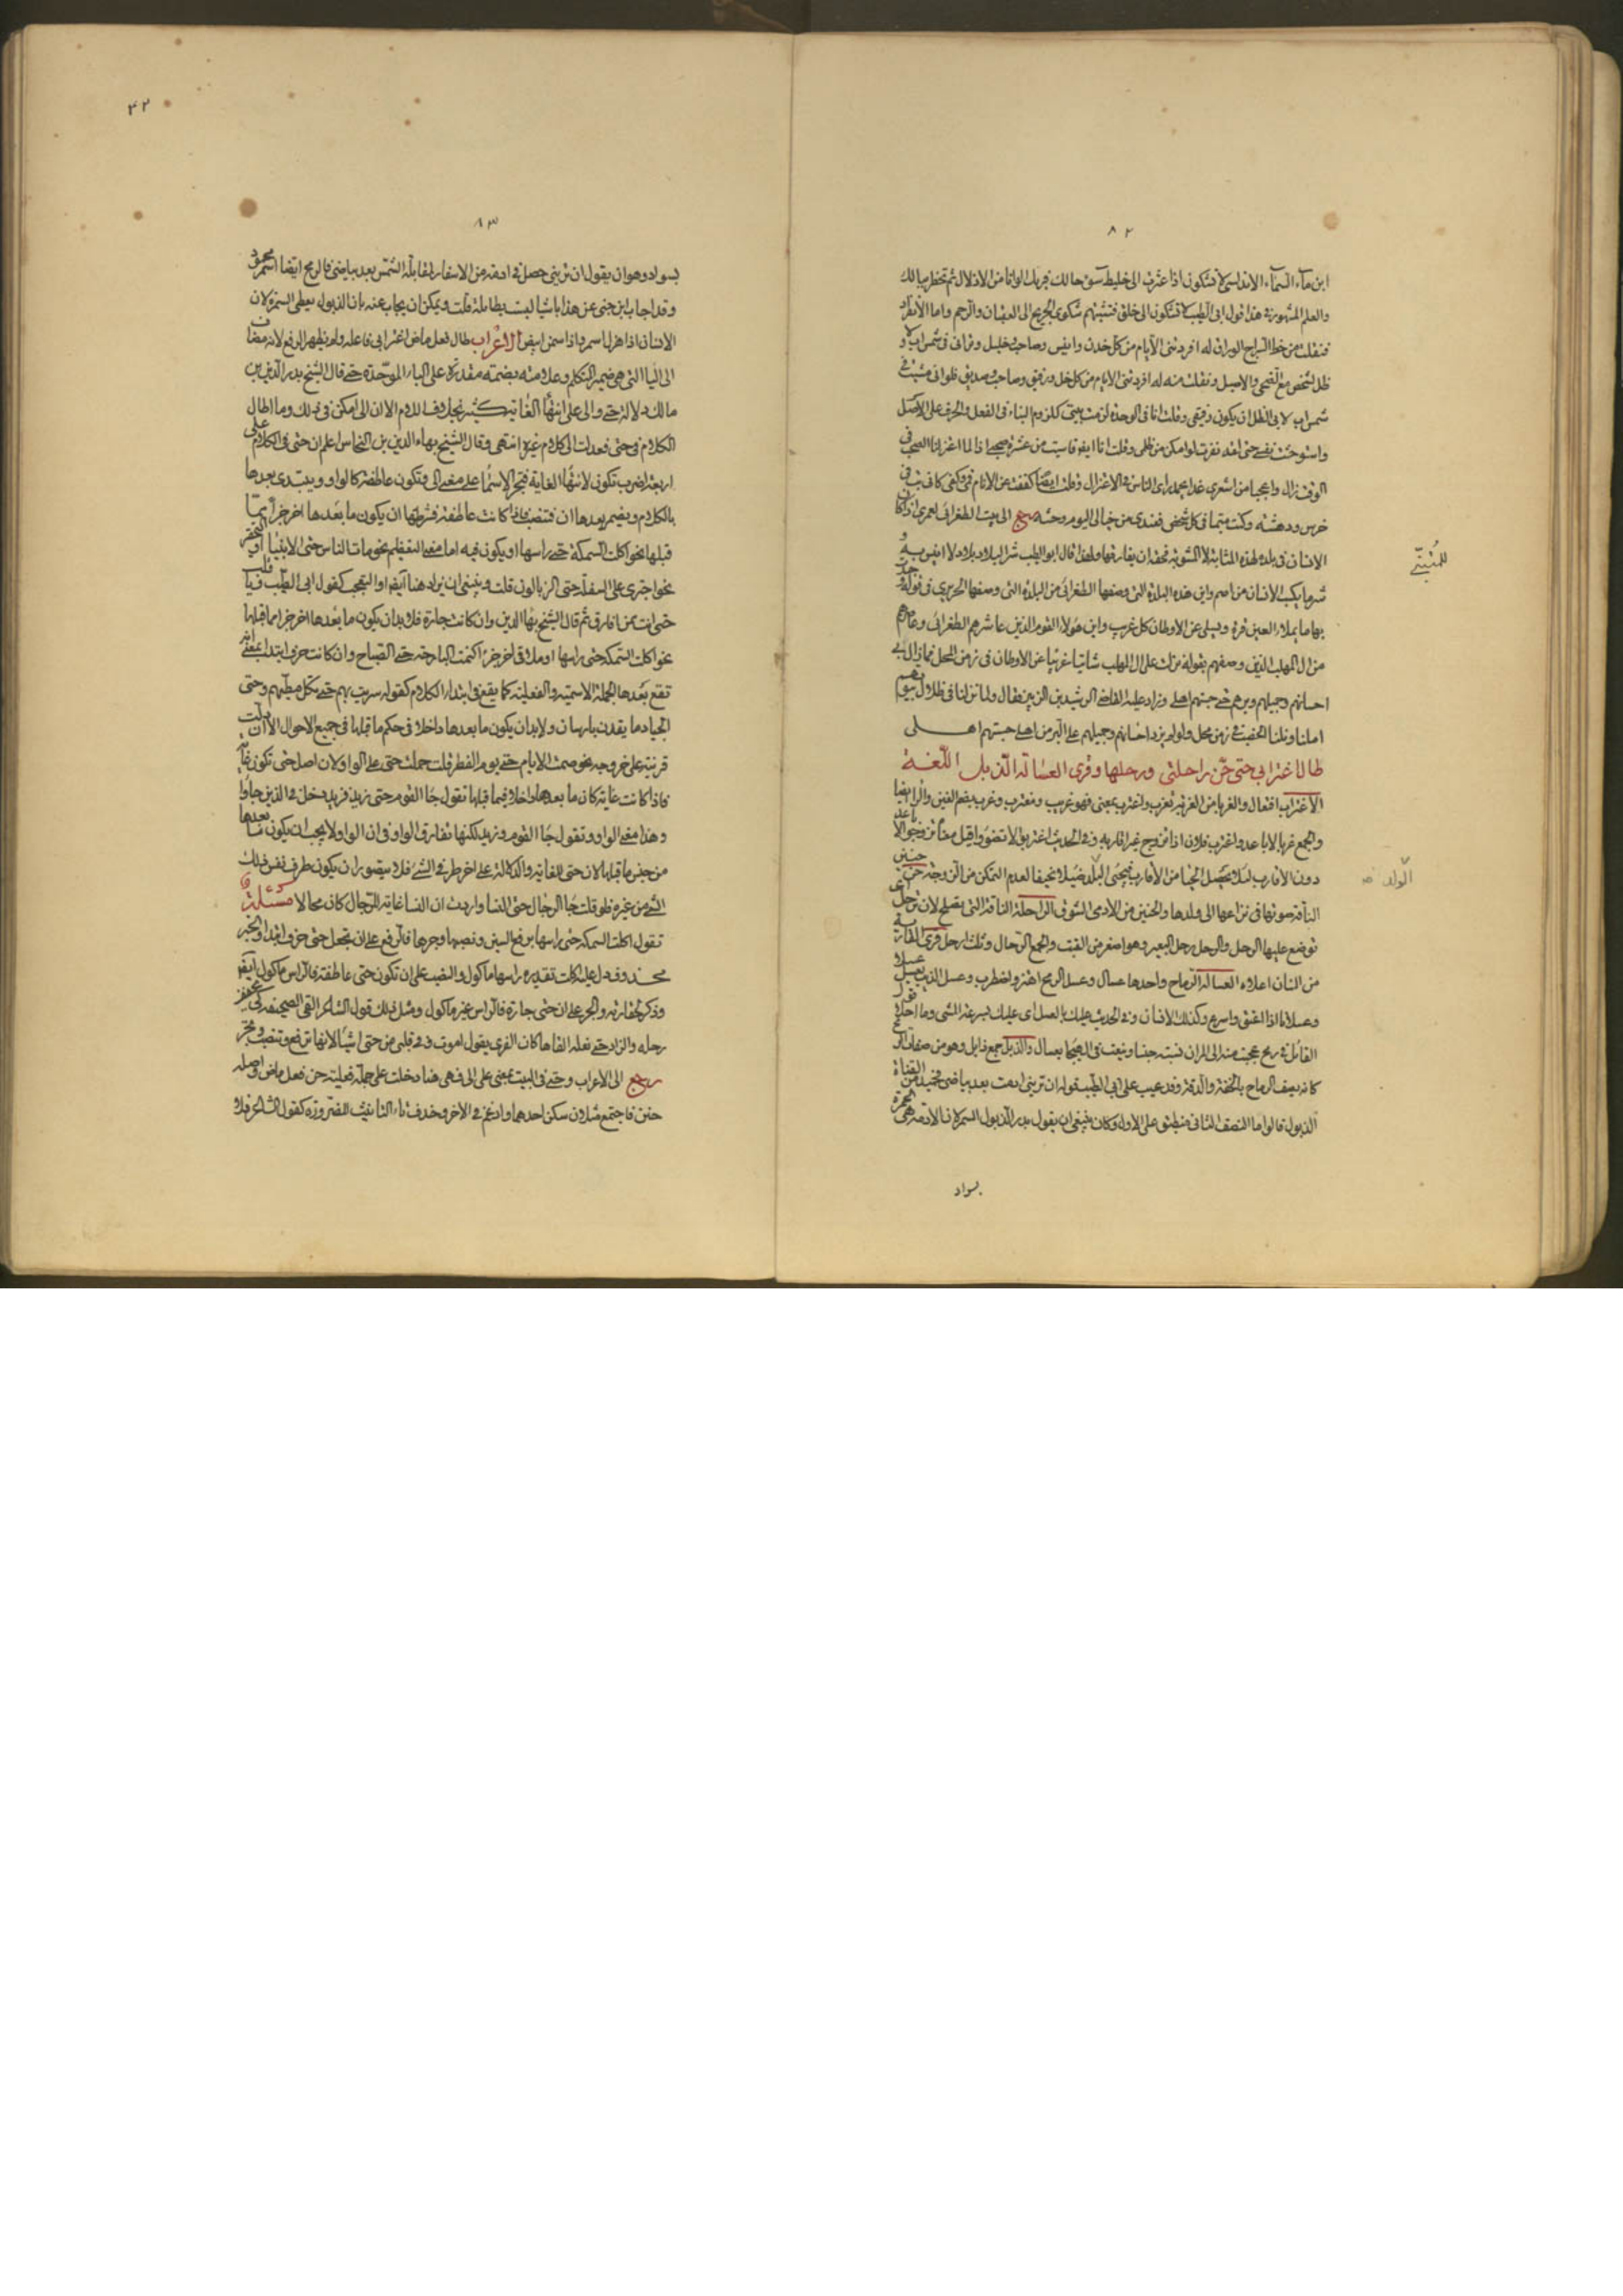 ٨٢
ابن ماء السماء الاندلسى لا تشكون اذا عثرت الى خليط سوء حالك فيريك الوانا من الاذلال لم تخطر ببالك
والعلم المشهور فى هذا قول ابى الطيب لا تشكون الى خلق فتشمتهم شكوى الجريح الى العقبان والرخم واما الانفراد
فنقلت من خط السراج الوراق له افردتنى الايام من كل خدن وانيس وصاحب خليل وترانى فى شمس
ظل لشخصى مع الضحى والاصيل ونقلت منه له افردتنى الايام من كل خل ورفيق وصاحب وصديق فلو انى مشيت فى
شمس اب لابى الظل ان يكون رفيقى وقلت انا فى الوحدة لزمت بيتى كلزوم البناء فى الفعل والحرف على الاصل
واستوحشت نفسى حتى لقد نفرت لو امكن من ظلى وقلت انا ايضا
خرس ودهشه وكنت متى ما فى كل شخص فعندى من خيالى اليوم وحشه رجع الى بيت الطغرائى لعمرى اذا كان
الانسان فى بلدة بهذه المثابة لا لتسويه تحفه ان يفارقها ولهذا قال ابو الطيب شر البلاد بلاد لا انيس به و
شر ما يكسب الانسان ما يصم واين هذه البلدة التى وصفها الطغرائى من البلدة التى وصفها الحريرى فى قوله وجدت
بها ما يملاء العين قرة ويسلى عن الاوطان كل غريب واين هولاء القوم الذين عاشرهم الطغرائى وعاصرهم
من ال المهلب الذين وصفهم بقوله نزلت على ال المهلب شاتيا غريبا عن الاوطان فى زمن المحل فما زال بى
احسانهم وجميلهم وبرهم حتى حسبتهم اهلى وزاد عليه القاضى الرشيد بن الزبير فقال ولما نزلنا فى ظلال بيوتهم
امنا ونلنا الخصب فى زمن محل ولو لم يزد احسانهم وجميلهم على البر من اهلى حسبتهم اهلى
طال اغترابى حتى حن راحلتى ورحلها وقرى العسالة الذبل اللغة
الاغتراب افتعال والغربا من الغربة تغرب واغترب بمعنى فهو غريب ومغترب وغرب بضم الغين والرا ايضا
والجمع غربا الاباعد واغترب فلان اذا تزوج غير اقاربه وفى الحديث اغتربوا لا تضووا قيل معناه تزوجوا الاباعد
دون الاقارب
الناقة صوتها فى نزاعها الى ولدها والحنين من الادمى الشوق الراحلة الناقة التى تصلح لان ترحل اى
توضع عليها الرحل والرحل رحل البعير وهو اصغر من القتب والجمع الرحال وثلث ارحل قرى
من السنان اعلاه العسالة الرماح واحدها عسال وعسل الرمح اهتز واضطرب وعسل الذيب يعسل عسلا
وعسلانا اذا اعنق واسرع وكذلك الانسان وفى الحديث عليك بالعسل اى عليك بسرعة المشى وما احلا قول
القائل فى رمح عجبت منه الى المران نسبته جنسا وينعت فى الهيجا بعسال والذبل جمع ذابل وهو من صفات الرمح
كانه يصف الرماح بالخفة والدقة وقد عيب على ابى الطيب قوله ان ترينى ادمت بعد بياض فحميد من القناة
الذبول قالوا اما النصف الثانى فينطبق على الاول وكان ينبغى ان يقول بدل الذبول السمر لان الادمة هى السمرة
بسواد
للمتنبى
الولد
٤٢
٨٣
بسواد وهو ان يقول ان ترينى حصل فى ادمة من الاسفار لمقابلة الشمس بعد بياضى فالرمح ايضا اسمر
وقد اجاب ابن جنى عن هذا باشيا ليست بطايلة قلت ويمكن ان يجاب عنه بان الذبول يعطى السمرة لان
الانسان اذا هزل اسمر واذا سمن ابيض الاعراب طال فعل ماض اغترابى فاعله ولم يظهر الرفع لانه مضاف
الى اليا التى هى ضمير المتكلم وعلامته ضمة مقدرة على الباء الموحدة حتى قال الشيخ بدر الدين بن
مالك دلالة حتى والى على انتهاء الغاية كثير بخلاف اللام الا ان الى امكن فى ذلك وما اطال
الكلام فى حتى فعدلت الى كلام غيره انتهى وقال الشيخ بهاء الدين بن النحاس اعلم ان حتى فى الكلام على
اربعة اضرب تكون لانتهاء الغاية فتجر الاسماء على معنى الى وتكون عاطفة كالواو ويبتدى بعدها
بالكلام ويضمر بعدها ان فتنصب فاذا كانت عاطفة فشرطها ان يكون ما بعدها اخر جزء مما
قبلها نحو اكلت السمكة حتى راسها او يكون فيه اما معنى التعظيم نحو مات الناس حتى الانبياء او التحقير
نحو اجترى على السفلة حتى الزبالون قلت وينبغى ان يزاد هنا ايضا او التعجب كقول ابى الطيب
حتى انت ممن افارق ثم قال الشيخ بها الدين وان كانت جارة فلا بد ان يكون ما بعدها اخر جزء مما قبلها
نحو اكلت السمكة حتى راسها او ملاقى اخر جزء كنمت البارحة حتى الصباح وان كانت حرف ابتدا بمعنى انه
تقع بعدها الجملة الاسمية والفعلية كما يقع فى ابتداء الكلام كقوله سريت بهم حتى تكل مطيهم وحتى
الجياد ما يقدن بارسان ولا بد ان يكون ما بعدها داخلا فى حكم ما قبلها فى جميع الاحوال الا ان دلت
قرينة على خروجه نحو صمت الايام حتى يوم الفطر قلت حملت حتى على الواو لان اصل حتى تكون غاية
فاذا كانت غاية كان ما بعدها داخلا فيما قبلها تقول جا القوم حتى زيد فزيد دخل فى الذين جاوا
وهذا معنى الواو وتقول جا القوم وزيد لكنها تفارق الواو فى ان الواو لا يجب ان يكون ما بعدها
من جنس ما قبلها لان حتى للغاية والدلالة على اخر طرفى الشى فلا يتصور ان يكون طرف نفس ذلك
الشى من غيره فلو قلت جا الرجال حتى النسا واردت ان النسا غاية للرجال كان محالا مسئلة
تقول اكلت السمكة حتى راسها برفع السين ونصبها وجرها فالرفع على ان تجعل حتى حرف ابتدا والخبر
محذوف دل عليه اكلت تقديره راسها ماكول والنصب على ان تكون حتى عاطفة فالراس ماكول ايضا
والجر على ان حتى جارة فالراس غير ماكول ومثل ذلك قول الشاعر القى الصحيفة كى يخفف
رحله والزاد حتى نعله القاها كان الفرى يقول اموت وفى قلبى من حتى شيا لانها ترفع وتنصب وتجر
رجع الى الاعراب وحتى فى البيت بمعنى على الى فهى هنا دخلت على جملة فعلية حن فعل ماض واصله
حنن فاجتمع مثلان سكن احدهما وادغم فى الاخر وحذف تاء التانيث للضرورة كقول الشاعر فلا